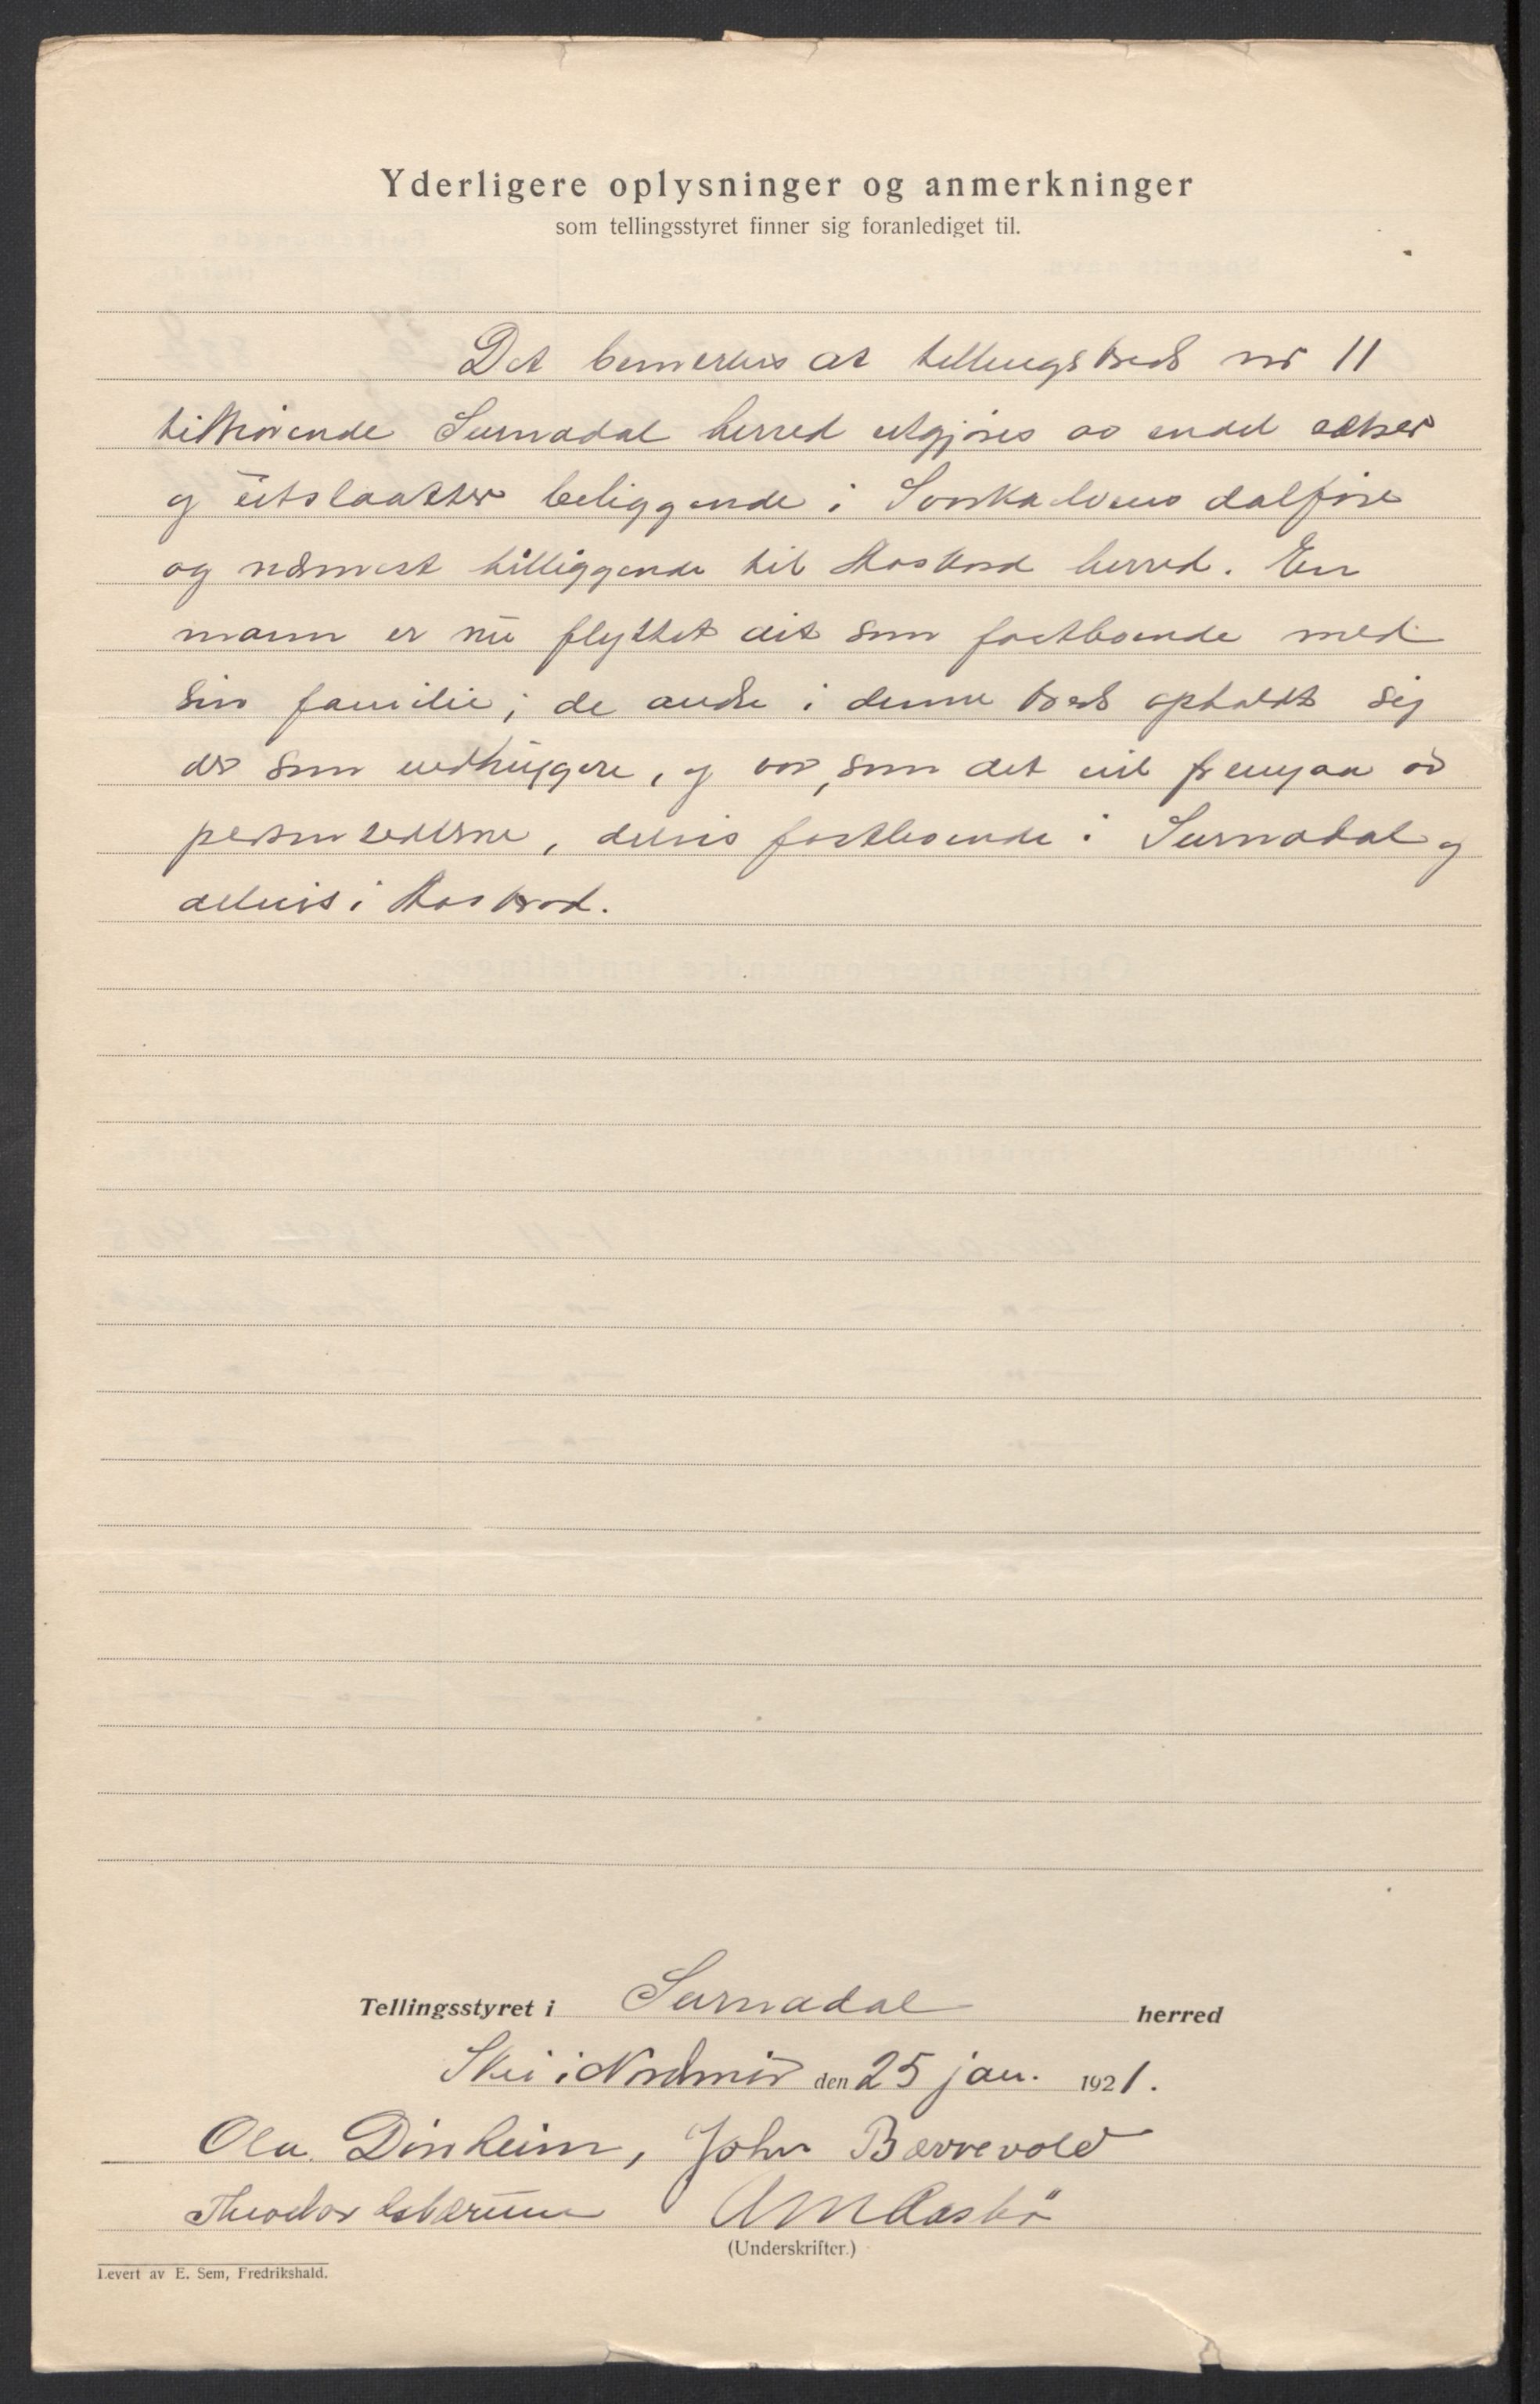 Yderligere oplysninger og anmerkninger
som tellingsstyret finner sig foranlediget til.
Det bemerkes at tellingskreds nr 11
tilhørende Surnadal herred utgjøres av endel sætrer
og utslaatter beliggende i dalføre
og nærmest tilliggende til herred. En
mann er nu flyttet dit som fastboende med
sin familie; de andre i denne kreds opholdt sig
der som vedhuggere, og var, som det vil fremgaa av
personsedlerne, delvis fastboende i Surnadal og
delvis i
Tellingsstyret i Surnadal herred
Skei i Nordmør den 25 jan. 1921.
Ola, John Bævrevold
Theodor
(Underskrifter.)
Levert av E. Sem, Fredrikshald.